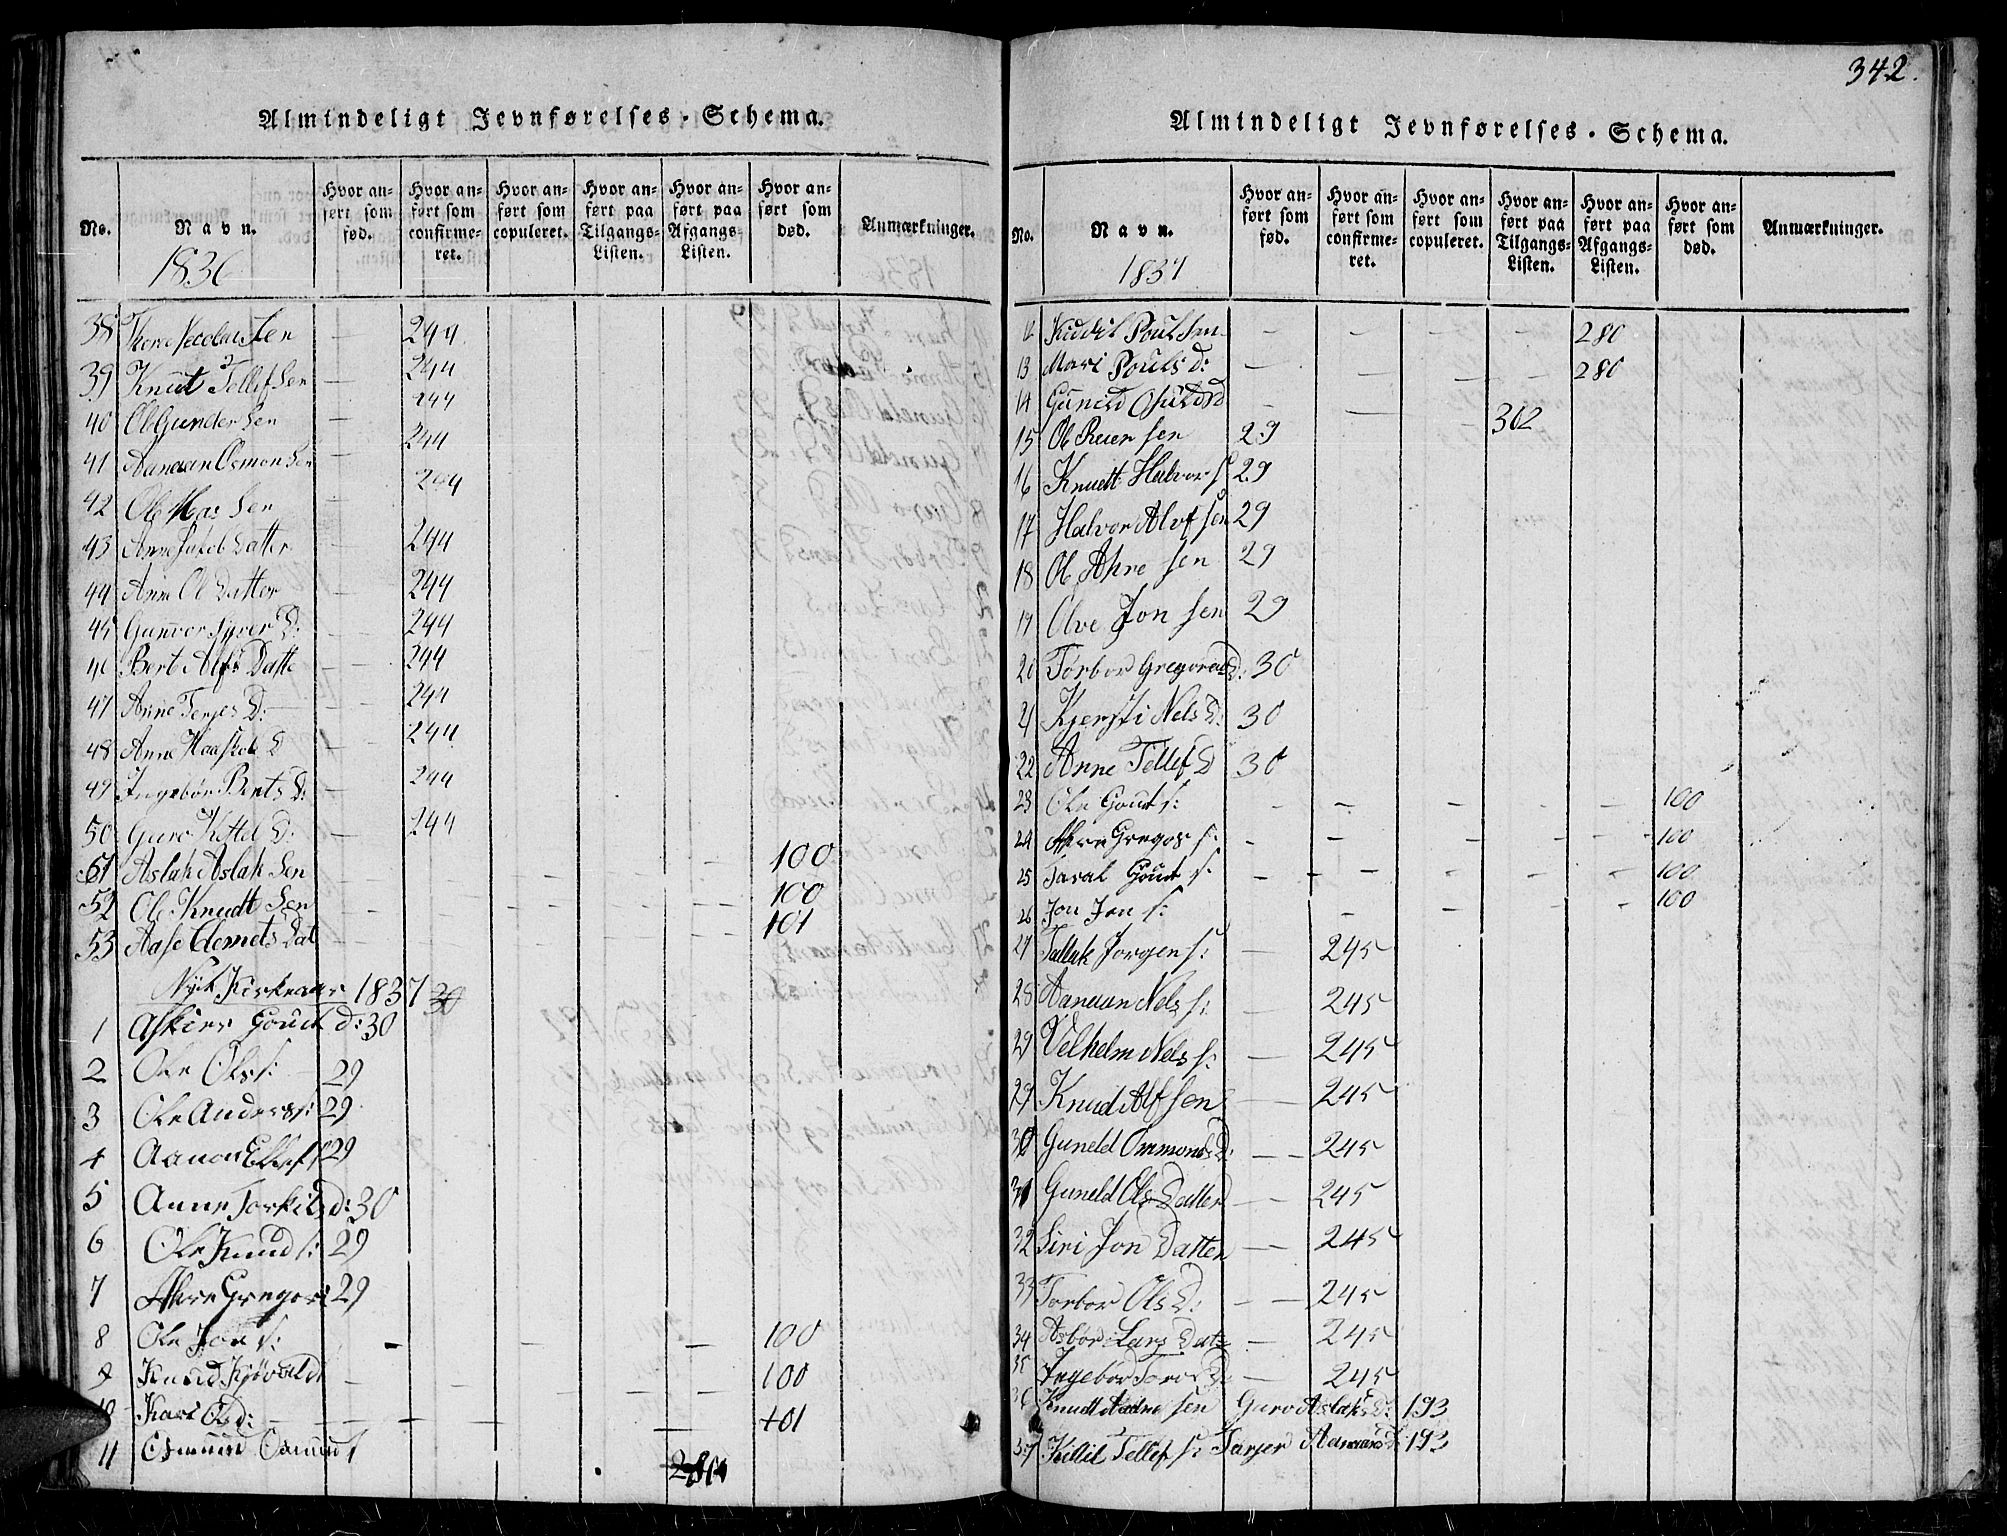 342.
Almindeligt Jevnførelses-Schema.
No. Navn. Hvor anført som fød. Hvor anført som confirmeret. Hvor anført som copuleret. Hvor anført paa Tilgangs-Listen. Hvor anført paa Afgangs-Listen. Hvor anført som død. Anmærkninger.
1836
38 Thore Sen — 244
39 Knut Tellef Sen — 244
40 Ol Gunder Sen — 244
41 Aanaan Osmon Sen — 244
42 Ole Sen — 244
43 Anne Jakob Datter — 244
44 Anne Ol Datter — 244
45 Gunnvor Syver D: — 244
46 Bert Alfs Datte — — 244
47 Anne Terjes D: — — 244
48 Anne D — — 244
49 Ingebor Bents D: — 244
50 Guro Kittel D: — 244
51 Aslak Aslak Sen — — — — — 100
52 Ole Knudt Sen — — — — — 100
53 Aase Clemets Dat — — — — 101
Nyt Kirkeaar 1837 30
1 Goute d: 30
2 Ole Ols s: — 29
3 Ole Anders s: 29
4 Aanon Ellef s 29
5 Anne Torkils d: 30
6 Ole Knud s: 29
7 Ahre Gregors 29
8 Ole Jon s: — — — 100
9 Knud — — — — — 100
10 Kari Ols d: — — — — — 101
11 Osmund Osmund s 280
Almindeligt Jevnførelses-Schema.
No. Navn. Hvor anført som fød. Hvor anført som confirmeret. Hvor anført som copuleret. Hvor anført paa Tilgangs-Listen. Hvor anført paa Afgangs-Listen. Hvor anført som død. Anmærkninger.
1837
12 Kiddil Poul Sen — — — — 280
13 Mari Pouls d: — — — — 280
14 Guneld — — 302
15 Ol Reier Sen 29
16 Knudt Halvor s 29
17 Halvor Alvf sen 29
18 Ol Ahre sen 29
19 Olve Jon sen 29
20 Torbor Gregorius D: 30
21 Kjersti Nels D: 30
22 Anne Tellef D 30
23 Ole Gout s: — — — — — 100
24 Ahre Gregor s: — — — — — 100
25 Taral Gout s: — — — — — 100
26 Jon Jon s: — — — 100
27 Tallak Jorgen s: — 245
28 Aanaan Nels s: 245
29 Velhelm Nels s: — 245
29 Knud Alfsen — 245
30 Guneld Ommonds D: — — 245
31 Guneld Ols Datter — 245
32 Siri Jon Datter — — 245
33 Torbor Ols D: — — 245
34 Asbor Lars Dat — 245
35 Ingebor Tor D — 245
36 Knudt sen Guro Aslaks D: 193
37 Killil Tellef s: Tarjer Aanaans D: 193